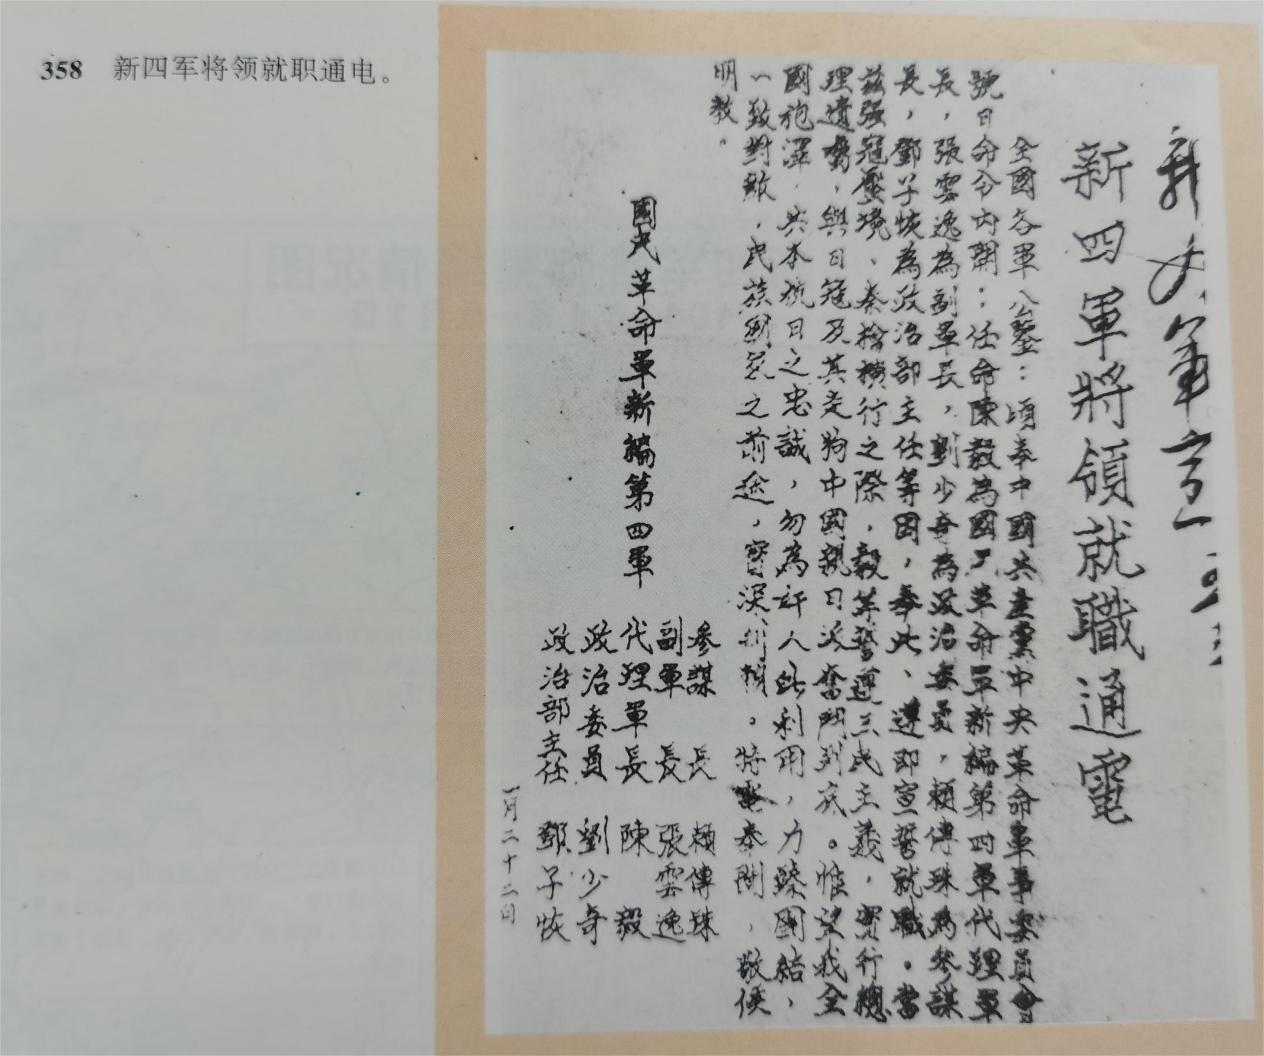 358 新四军将领就职通电。
新四軍將領就職通電
全國各軍公鑒：頃奉中國共產黨中央革命軍事委員會
號日命令內開：任命陳毅為國民革命軍新編第四軍代理軍
長，張雲逸為副軍長，劉少奇為政治委員，賴傳珠為參謀
長，鄧子恢為政治部主任等因，奉此、遵即宣誓就職。當
茲強寇壓境、秦檜橫行之際，毅等誓遵三民主義，實行總
理遺囑，與日寇及其走狗中國親日派奮鬥到底。惟望我全
國袍澤，共本抗日之忠誠，勿為奸人所利用，力臻團結，
一致對敵，民族國家之前途，實深利賴。特電奉聞，敬候
明教。
國民革命軍新編第四軍
參謀長 賴傳珠
副軍長 張雲逸
代理軍長 陳毅
政治委員 劉少奇
政治部主任 鄧子恢
一月二十二日